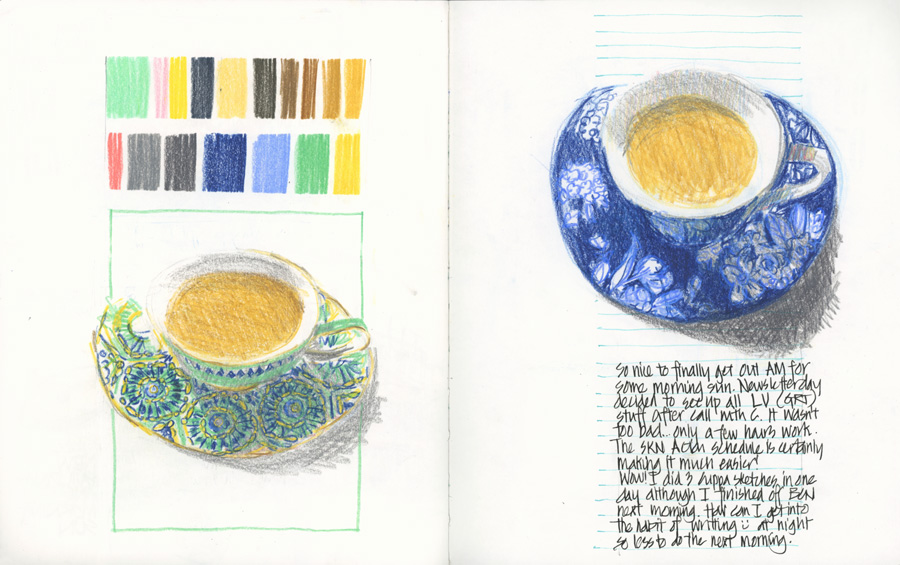 So nice to finally get out AM for
some morning sun. Newsletter day
decided to set up all LV (GRT)
stuff after call with C. It wasn't
too bad... only a few hours work.
The SKN ACdn schedule is certainly
making it much easier!
Wow! I did 3 cuppa sketches in one
day although I finished off BCN
next morning. How can I get into
the habit of writting :) at night
so less to do the next morning.